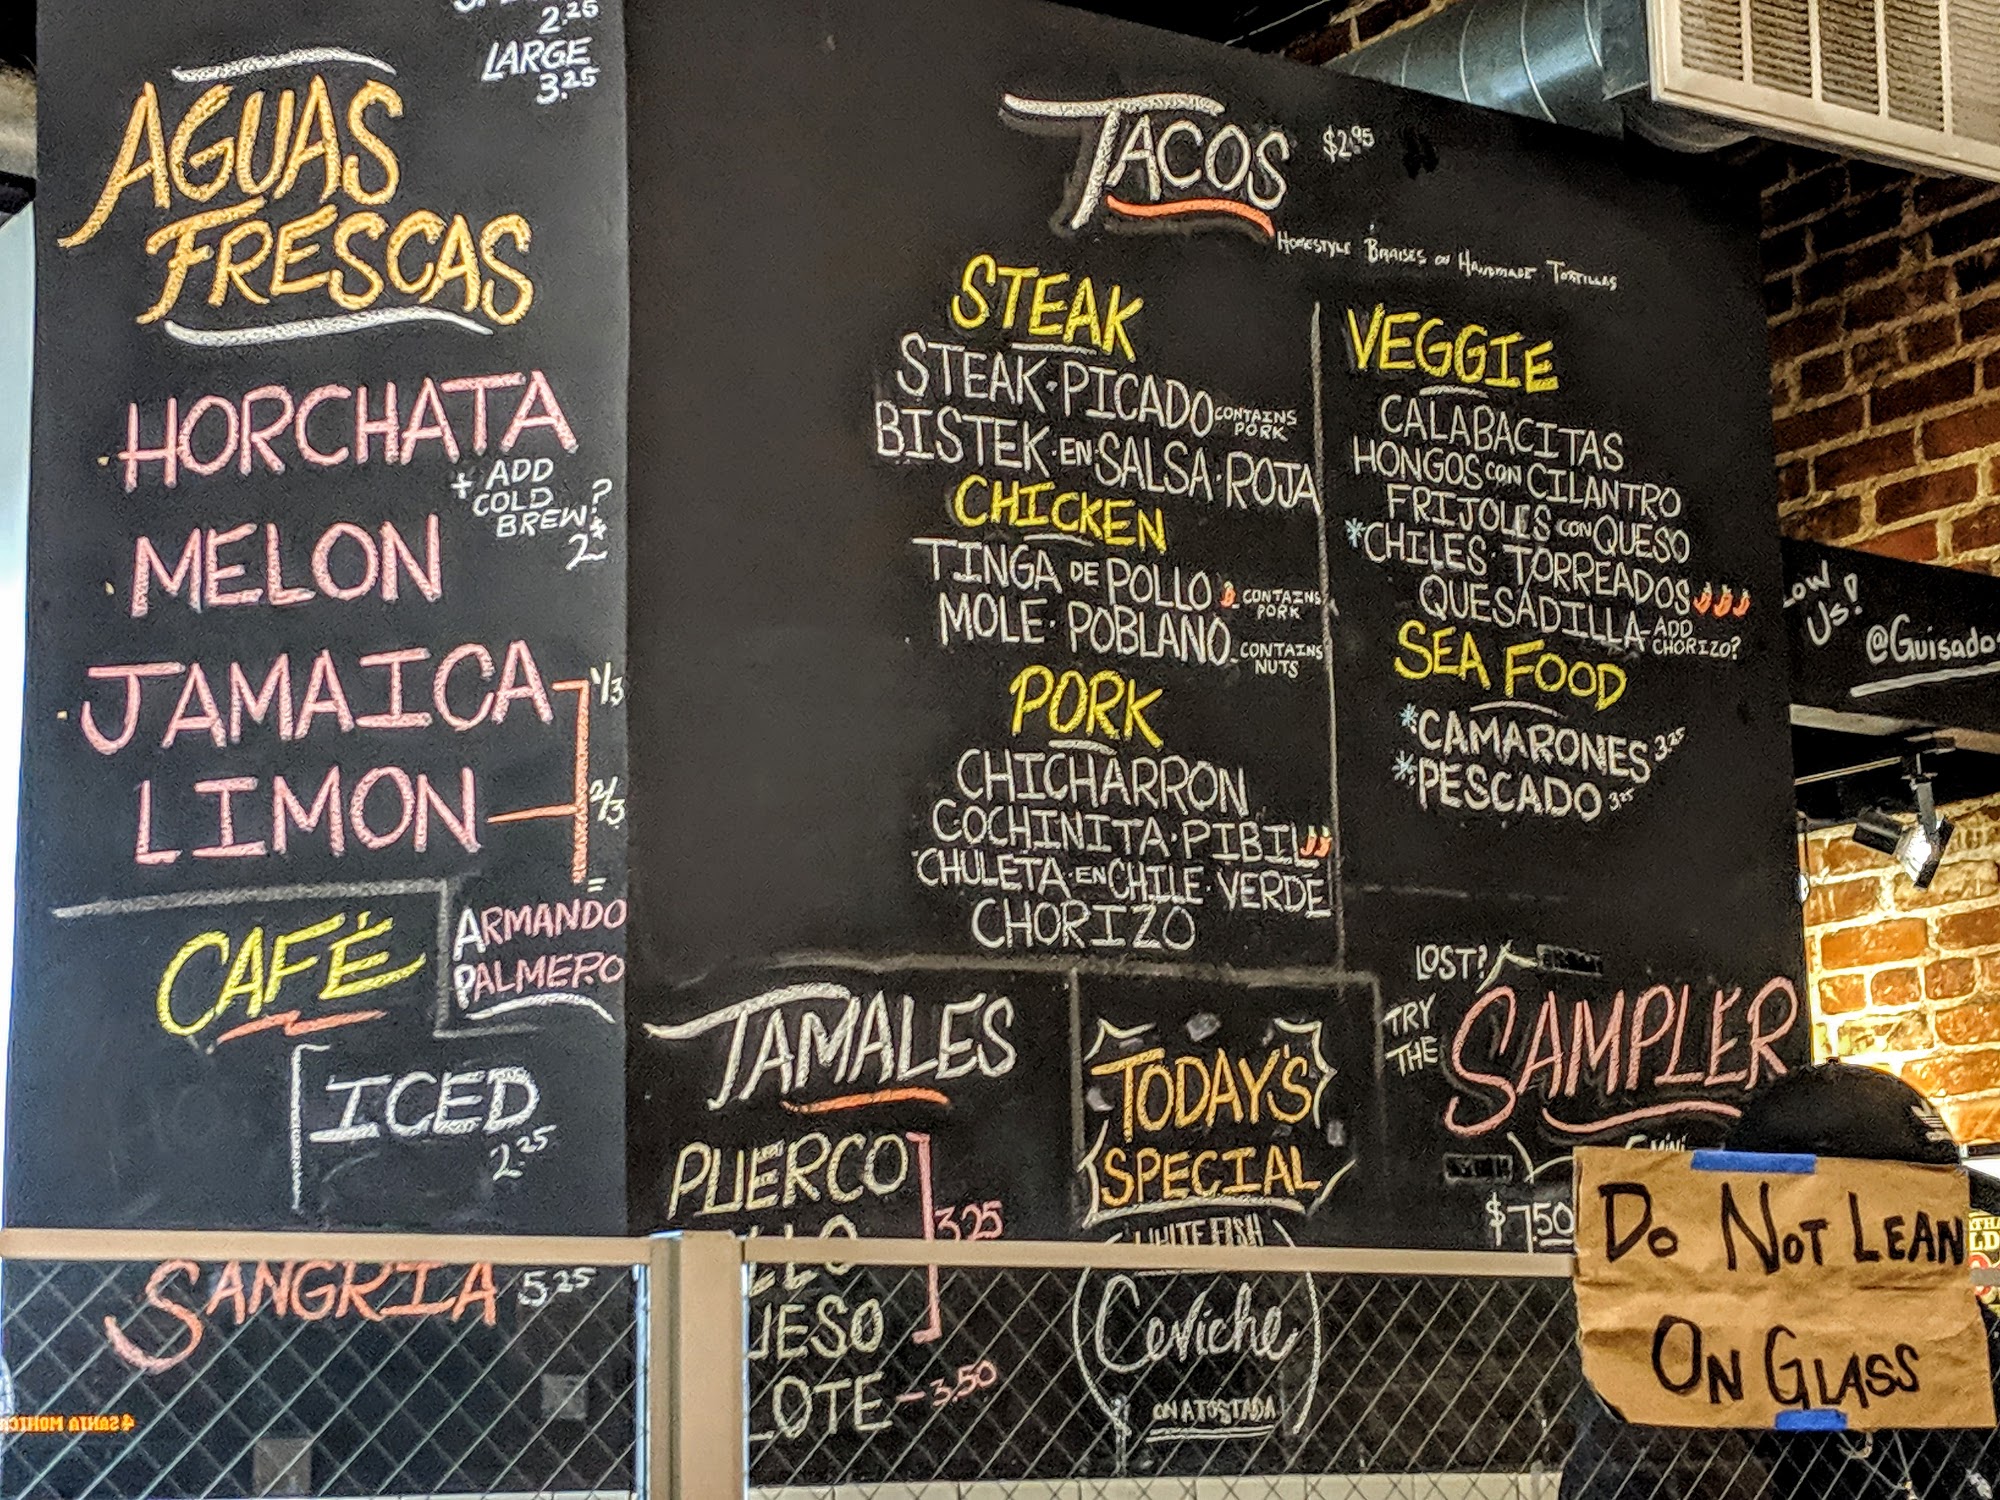 2.25
LARGE
3.25
AGUAS
FRESCAS
HORCHATA
+ ADD
COLD
BREW?
MELON
JAMAICA 1/3
LIMON 2/3
=
ARMANDO
PALMERO
CAFÉ
ICED
2.25
SANGRIA 5.25
TACOS $2.95
HOMESTYLE BRAISES ON HANDMADE TORTILLAS
STEAK
STEAK·PICADO CONTAINS
PORK
BISTEK·EN·SALSA·ROJA
CHICKEN
TINGA DE POLLO CONTAINS
PORK
MOLE·POBLANO CONTAINS
NUTS
PORK
CHICHARRON
COCHINITA·PIBIL
CHULETA·EN·CHILE·VERDE
CHORIZO
VEGGIE
CALABACITAS
HONGOS CON CILANTRO
FRIJOLES CON QUESO
*CHILES·TORREADOS
QUESADILLA ADD
CHORIZO?
SEA FOOD
*CAMARONES 3.25
*PESCADO 3.25
TAMALES
PUERCO
3.25
UESO
LOTE - 3.50
TODAY'S
SPECIAL
WHITE FISH
Ceviche
ON A TOSTADA
LOST?
TRY
THE
SAMPLER
$7.50
LOW
US!
@GUISADOS
DO NOT LEAN
ON GLASS